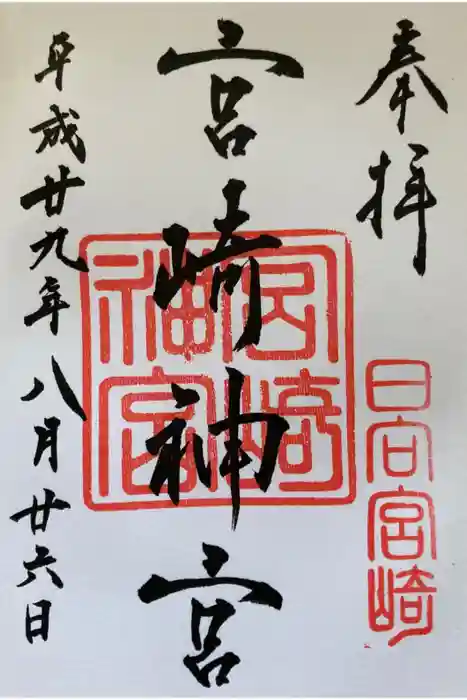 奉拝
日向宮崎
宮崎神宮
宮崎神宮
平成廿九年八月廿六日